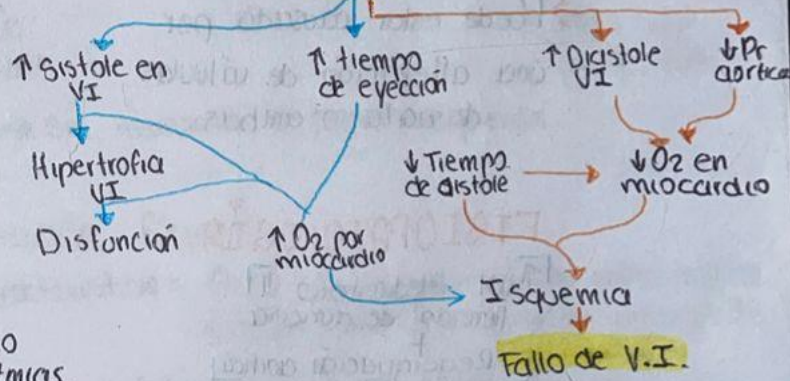 ↑ Sistole en
VI
↑ tiempo
de eyección
↑ Diastole
VI
↓ Pr
aortica
Hipertrofia
VI
↓ Tiempo
de distole
↓ O2 en
miocardio
Disfunción
↑ O2 por
miocardio
Isquemia
Fallo de V.I.
o